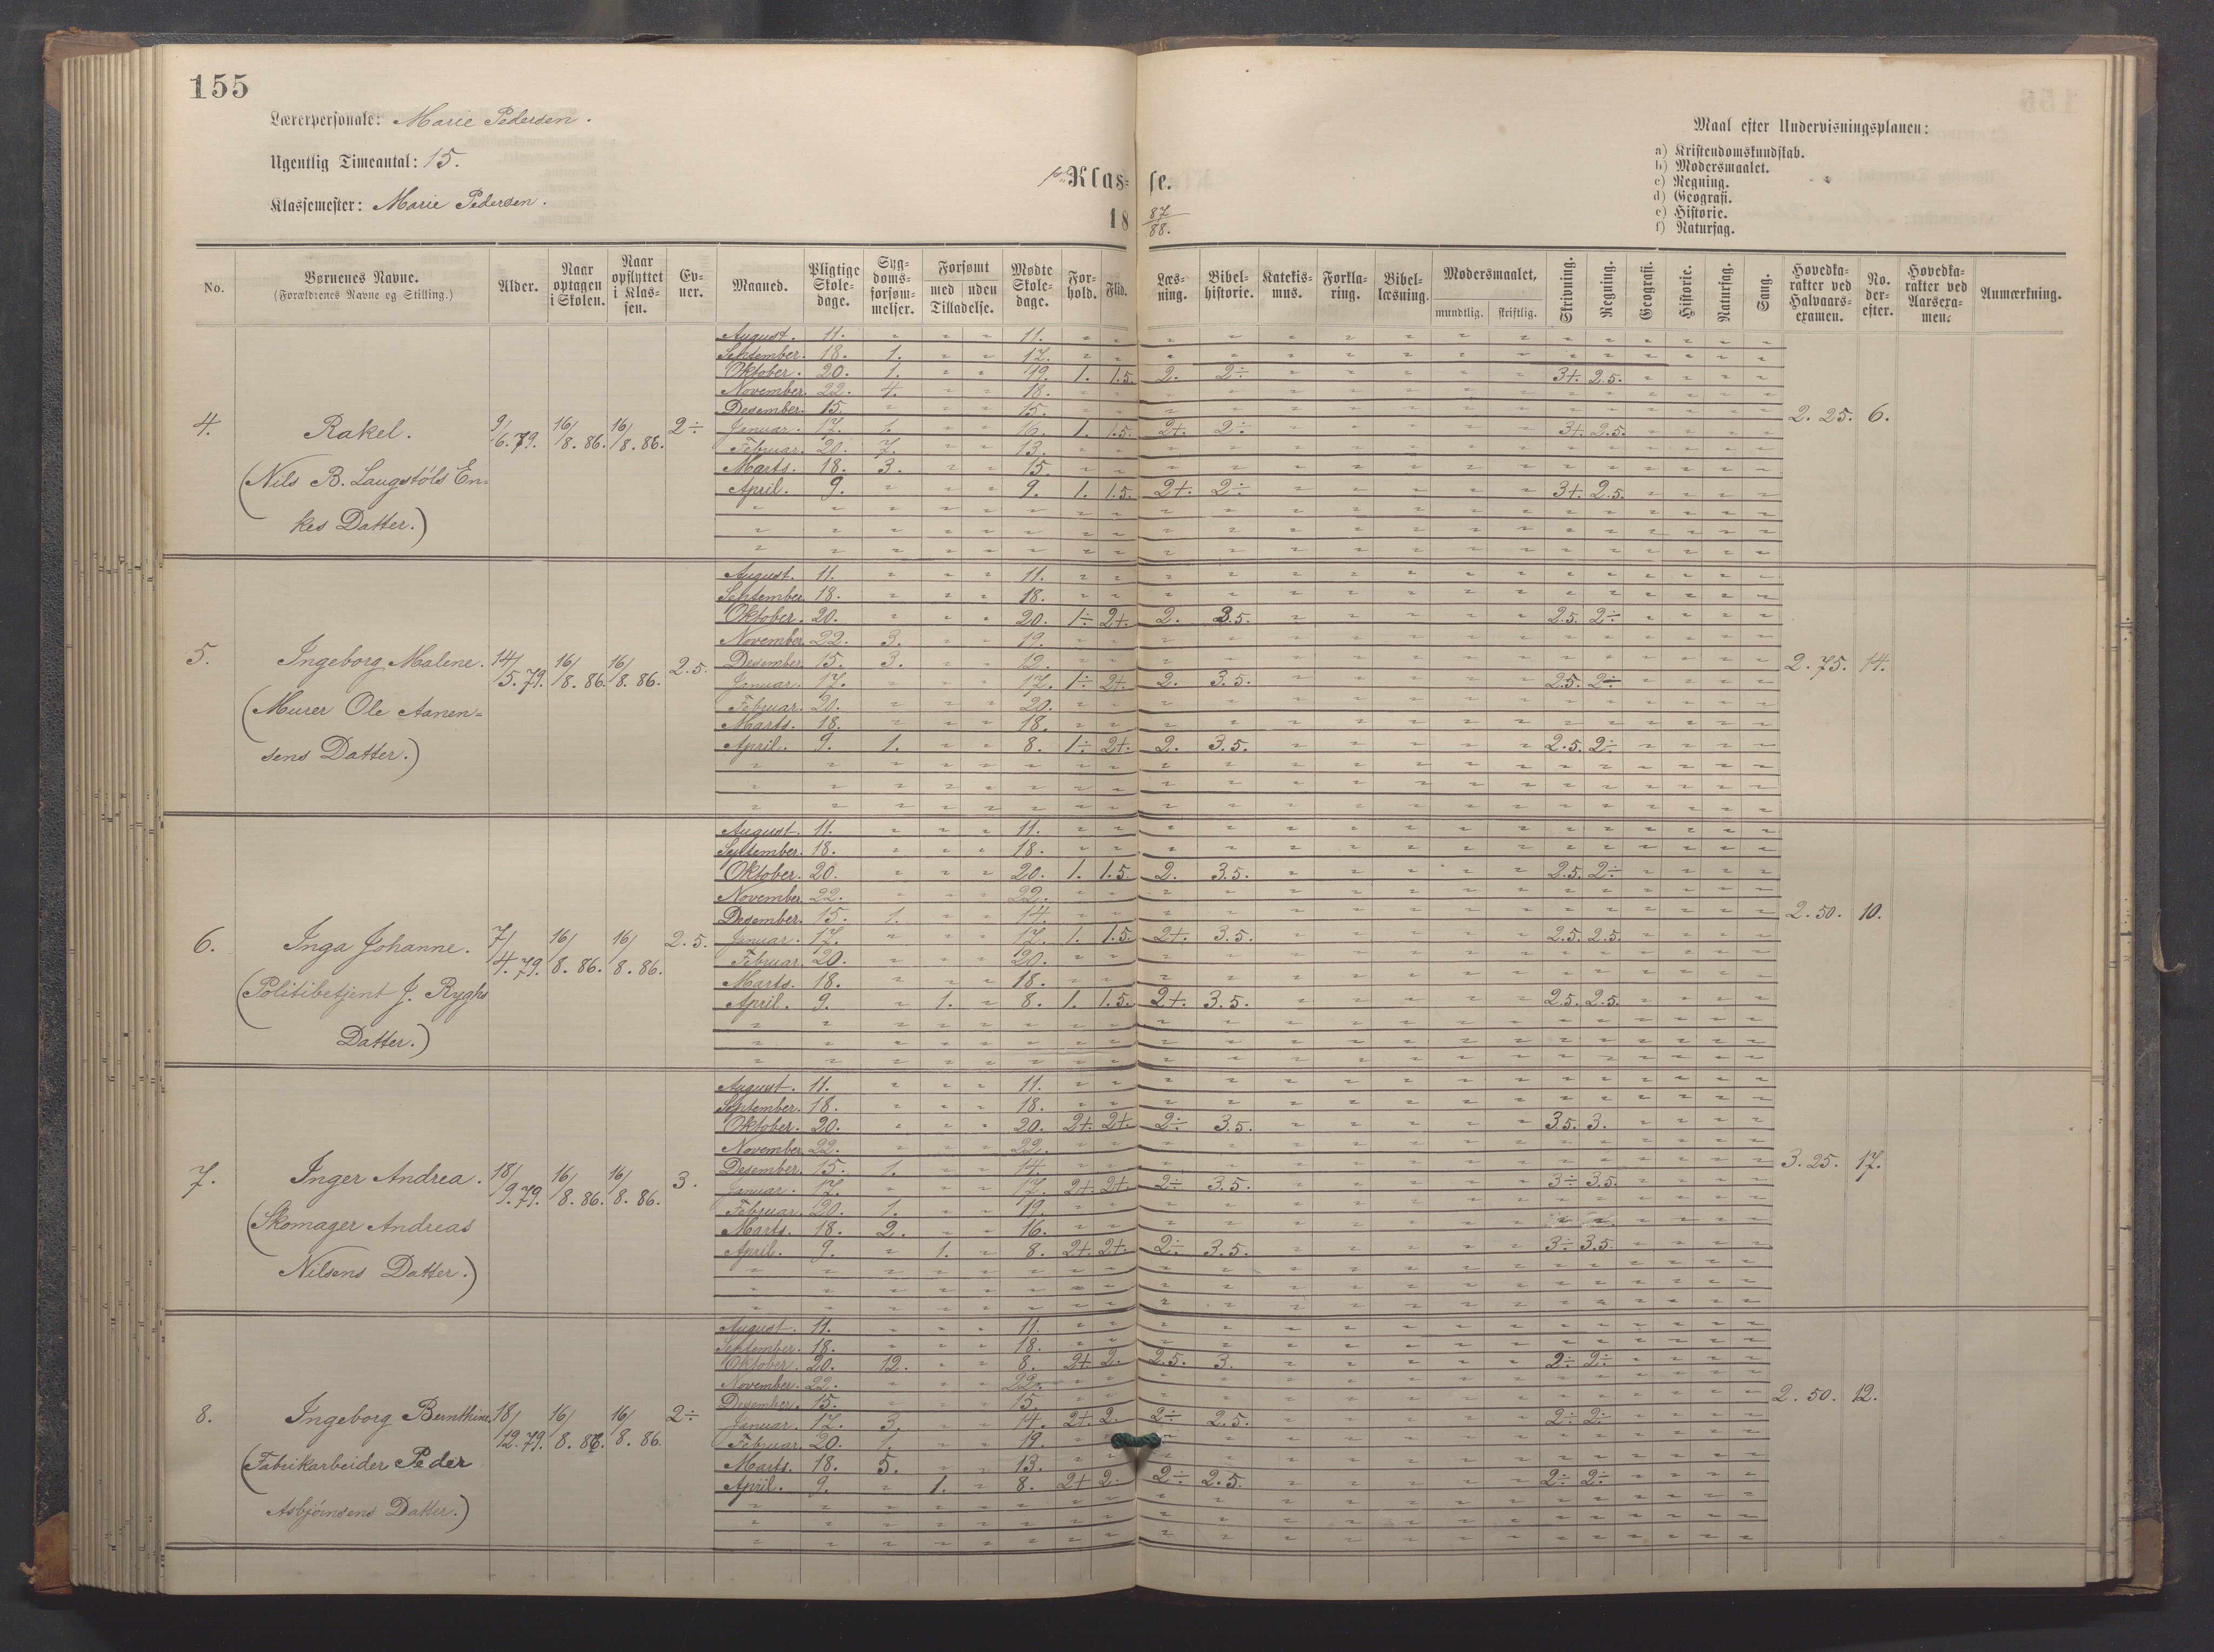 155
Lærerpersonale: Marie Pedersen.
Ugentlig Timeantal: 15.
Klassemester: Marie Pedersen.
Klasse.
18 87/88.
Maal efter Undervisningsplanen:
a) Kristendomskundskab.
b) Modersmaalet.
c) Regning.
d) Geografi.
e) Historie.
f) Naturfag.
No. | Børnenes Navne. (Forældrenes Navne og Stilling.) | Alder. | Naar optagen i Skolen. | Naar opflyttet i Klassen. | Evner. | Maaned. | Pligtige Skoledage. | Sygdomsforsømmelser. | Forsømt med uden Tilladelse. | Mødte Skoledage. | Forhold. | Flid. | Læsning. | Bibelhistorie. | Katekismus. | Forklaring. | Bibellæsning. | Modersmaalet, mundtlig. skriftlig. | Skrivning. | Regning. | Geografi. | Historie. | Naturfag. | Sang. | Hovedkarakter ved Halvaarsexamen. | No. derefter. | Hovedkarakter ved Aarsexamen. | Anmærkning.
4. Rakel. 9/6. 79. 16/8. 86. 16/8. 86. 2÷ 2.25. 6.
(Nils B. Laugstóls Enkes Datter.)
August. 11. " " " 11. " "
September. 18. 1. " " 17. " "
Oktober. 20. 1. " " 19. 1. 1.5. 2. 2÷ 3+. 2.5.
November. 22. 4. " " 18. " "
Desember. 15. " " " 15. " "
Januar. 17. 1. " " 16. 1. 1.5. 2+. 2÷ 3+. 2.5.
Februar. 20. 7. " " 13. " "
Marts. 18. 3. " " 15. " "
April. 9. " " " 9. 1. 1.5. 2+. 2÷ 3+. 2.5.
5. Ingeborg Malene. 14/5. 79. 16/8. 86. 16/8. 86. 2.5. 2.75. 14.
(Murer Ole Aanensens Datter.)
August. 11. " " " 11. " "
September. 18. " " " 18. " "
Oktober. 20. " " " 20. 1÷ 2+. 2. 3.5. 2.5. 2÷
November. 22. 3. " " 19. " "
Desember. 15. 3. " " 12. " "
Januar. 17. " " " 17. 1÷ 2+. 2. 3.5. 2.5. 2÷
Februar. 20. " " " 20. " "
Marts. 18. " " " 18. " "
April. 9. 1. " " 8. 1÷ 2+. 2. 3.5. 2.5. 2÷
6. Inga Johanne. 7/4. 79. 16/8. 86. 16/8. 86. 2.5. 2.50. 10.
(Politibetjent J. Ryghs Datter.)
August. 11. " " " 11. " "
September. 18. " " " 18. " "
Oktober. 20. " " " 20. 1. 1.5. 2. 3.5. 2.5. 2÷
November. 22. " " " 22. " "
Desember. 15. 1. " " 14. " "
Januar. 17. " " " 17. 1. 1.5. 2+. 3.5. 2.5. 2.5.
Februar. 20. " " " 20. " "
Marts. 18. " " " 18. " "
April. 9. " 1. " 8. 1. 1.5. 2+. 3.5. 2.5. 2.5.
7. Inger Andrea. 18/9. 79. 16/8. 86. 16/8. 86. 3. 3.25. 17.
(Skomager Andreas Nilsens Datter.)
August. 11. " " " 11. " "
September. 18. " " " 18. " "
Oktober. 20. " " " 20. 2+. 2+. 2÷ 3.5. 3.5. 3.
November. 22. " " " 22. " "
Desember. 15. 1. " " 14. " "
Januar. 17. " " " 17. 2+. 2+. 2÷ 3.5. 3÷ 3.5.
Februar. 20. 1. " " 19. " "
Marts. 18. 2. " " 16. " "
April. 9. " 1. " 8. 2+. 2+. 2÷ 3.5. 3÷ 3.5.
8. Ingeborg Bernthine. 18/12. 79. 16/8. 86. 16/8. 86. 2÷ 2.50. 12.
(Fabrikarbeider Peder Asbjörnsens Datter.)
August. 11. " " " 11. " "
September. 18. " " " 18. " "
Oktober. 20. 12. " " 8. 2+. 2. 2.5. 3. 2÷ 2÷
November. 22. " " " 22. " "
Desember. 15. " " " 15. " "
Januar. 17. 3. " " 14. 2+. 2. 2÷ 2.5. 2÷ 2÷
Februar. 20. 1. " " 19. " "
Marts. 18. 5. " " 13. " "
April. 9. " 1. " 8. 2+ 2. 2÷ 2.5. 2÷ 2÷